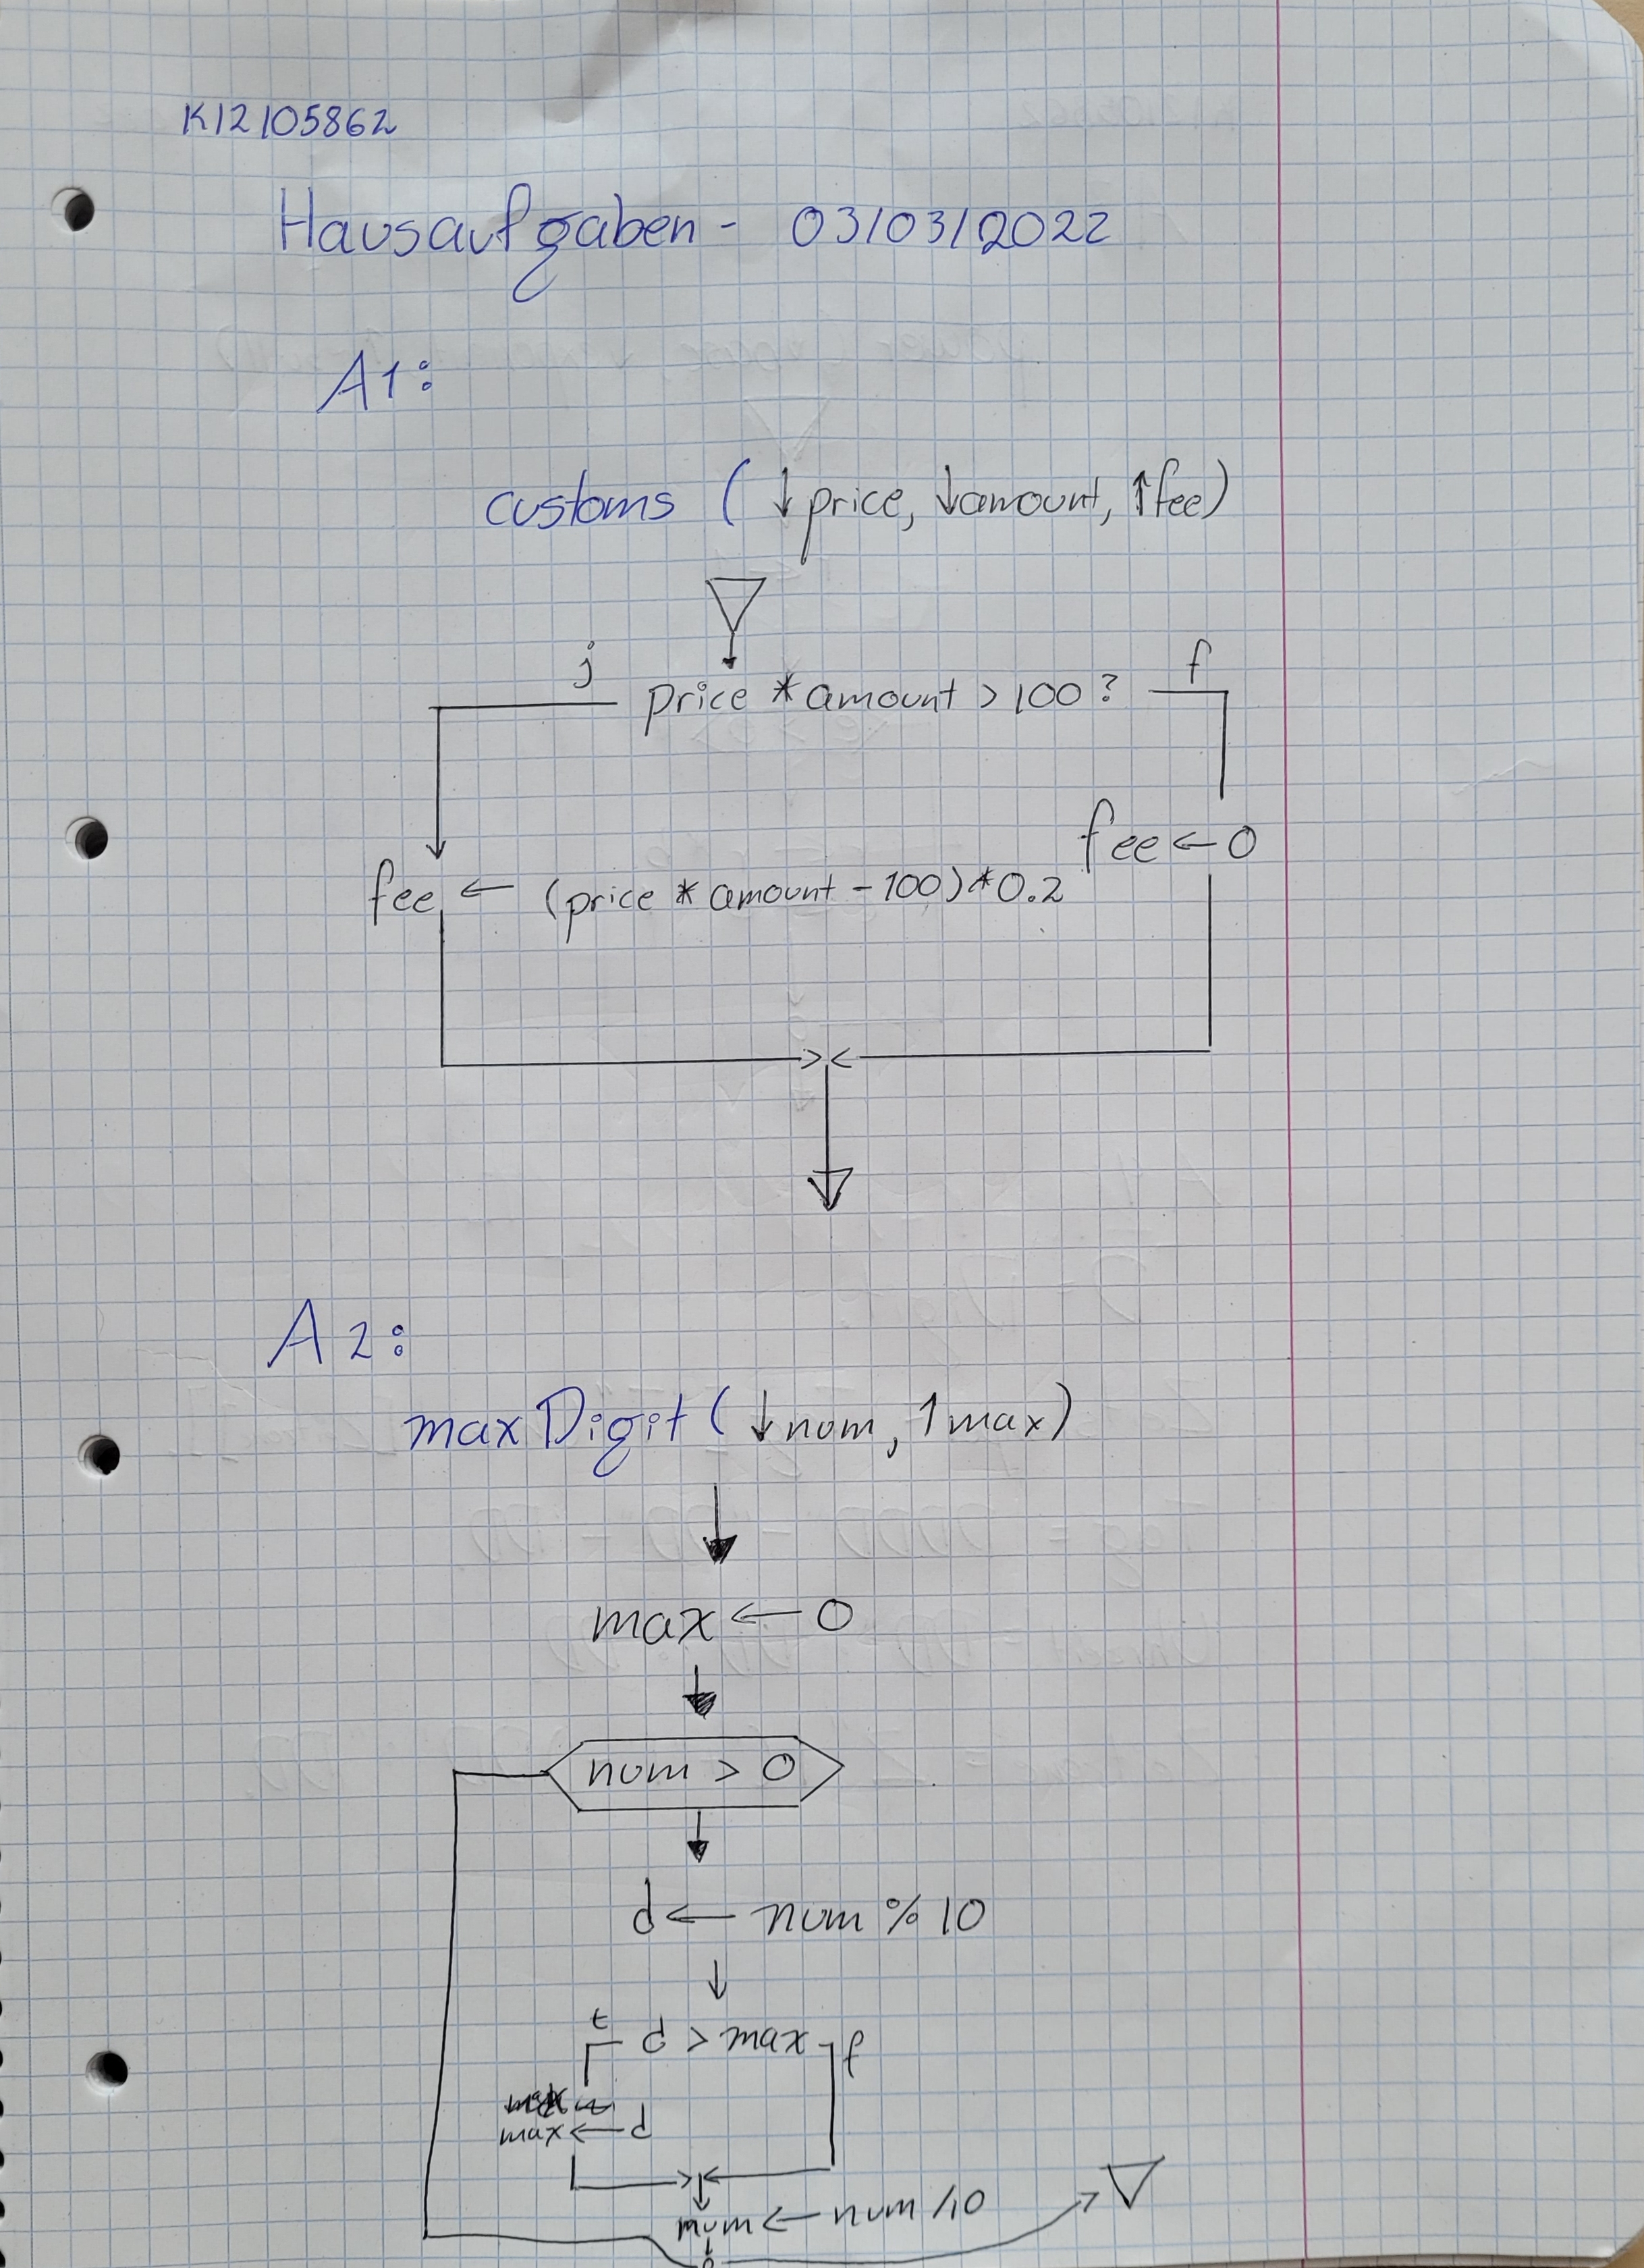 K12105862
Hausaufgaben - 03/03/2022
A1:
customs (↓price, ↓amount, ↑fee)
j price * amount > 100 ? f
fee ← 0
fee ← (price * amount - 100) * 0.2
A2:
maxDigit (↓num, ↑max)
max ← 0
num > 0
d ← num % 10
t d > max f
max ← d
num ← num /10